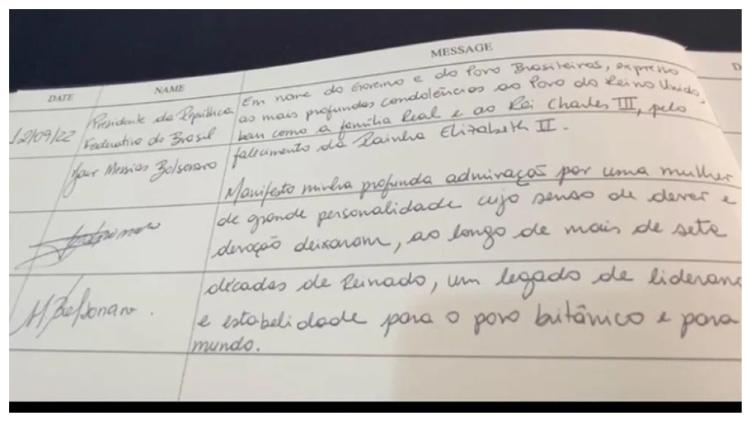 DATE NAME MESSAGE D
12/09/22 Presidente da República Em nome do Governo e do Povo Brasileiros, expresso
Federativa do Brasil as mais profundas condolências ao Povo do Reino Unido,
Jair Messias Bolsonaro bem como a família Real e ao Rei Charles III, pelo
falecimento da Rainha Elizabeth II.
Manifesto minha profunda admiração por uma mulher
de grande personalidade cujo senso de dever e
devoção deixaram, ao longo de mais de sete
décadas de Reinado, um legado de lideran
M Bolsonaro. e estabelidade para o povo britânico e para
mundo.